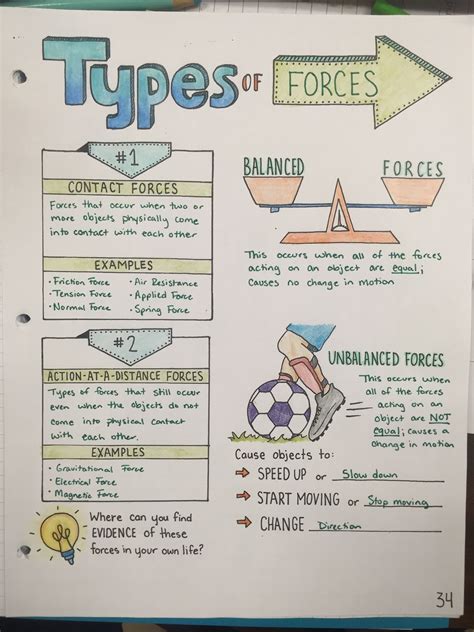 Types OF FORCES
#1
CONTACT FORCES
Forces that occur when two or
more objects physically come
into contact with each other
EXAMPLES
• Friction Force • Air Resistance
• Tension Force • Applied Force
• Normal Force • Spring Force
#2
ACTION-AT-A-DISTANCE FORCES
Types of forces that still occur
even when the objects do not
come into physical contact
with each other.
EXAMPLES
• Gravitational Force
• Electrical Force
• Magnetic Force
Where can you find
EVIDENCE of these
forces in your own life?
BALANCED FORCES
This occurs when all of the forces
acting on an object are equal;
Causes no change in motion
UNBALANCED FORCES
This occurs when
all of the forces
acting on an
object are NOT
equal; causes a
change in motion
Cause objects to:
→ SPEED UP or Slow down
→ START MOVING or Stop moving
→ CHANGE Direction
34